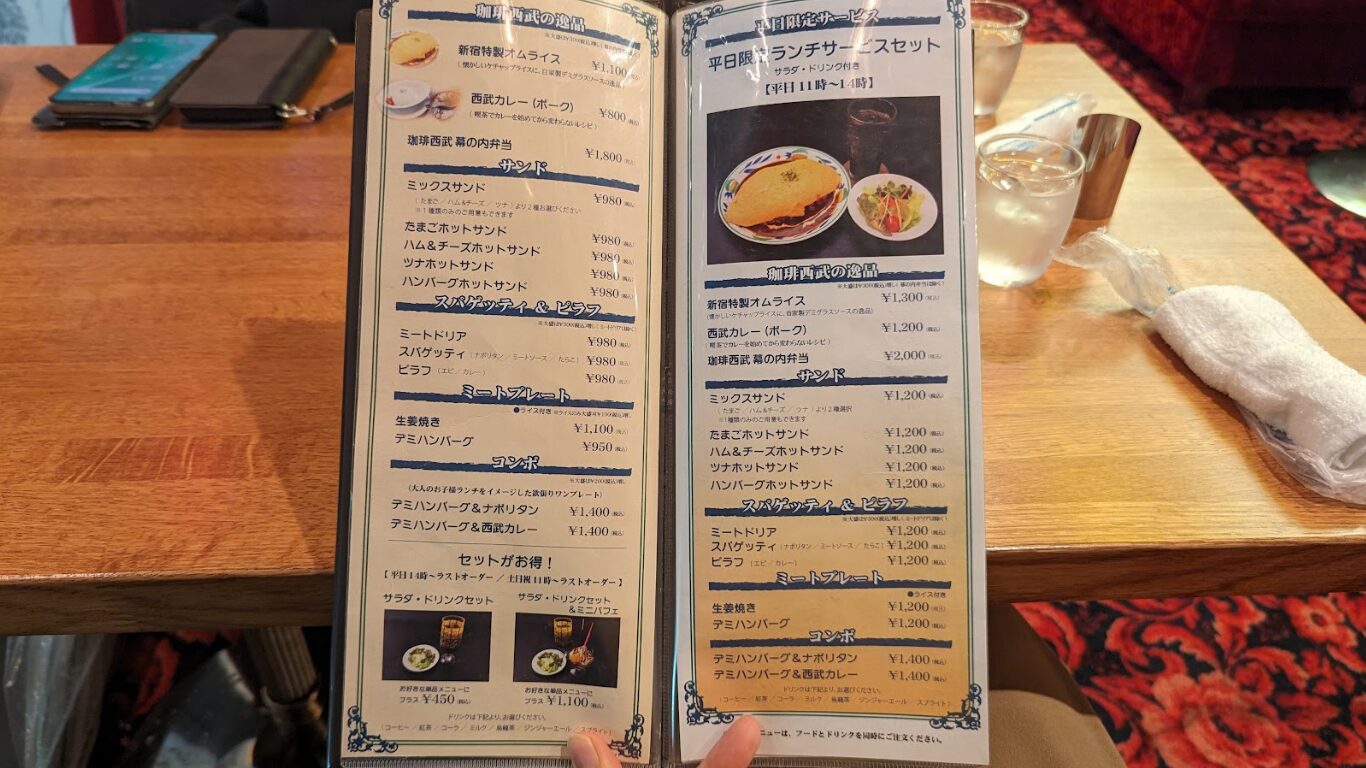 珈琲西武の逸品
※大盛は¥300(税込)増し(幕の内弁当は除く)
新宿特製オムライス ¥1,100(税込)
(懐かしいケチャップライスに、自家製デミグラスソースの逸品)
西武カレー(ポーク) ¥800(税込)
(喫茶でカレーを始めてから変わらないレシピ)
珈琲西武 幕の内弁当 ¥1,800(税込)
サンド
ミックスサンド ¥980(税込)
(たまご/ハム&チーズ/ツナ)より2種お選びください
※1種類のみのご用意もできます
たまごホットサンド ¥980(税込)
ハム&チーズホットサンド ¥980(税込)
ツナホットサンド ¥980(税込)
ハンバーグホットサンド ¥980(税込)
スパゲッティ & ピラフ
※大盛は¥300(税込)増し(ミートドリアは除く)
ミートドリア ¥980(税込)
スパゲッティ(ナポリタン/ミートソース/たらこ) ¥980(税込)
ピラフ(エビ/カレー) ¥980(税込)
ミートプレート
●ライス付き ※ライスのみ大盛¥100(税込)増し
生姜焼き ¥1,100(税込)
デミハンバーグ ¥950(税込)
コンボ
※大盛は¥200(税込)増し
(大人のお子様ランチをイメージした欲張りワンプレート)
デミハンバーグ&ナポリタン ¥1,400(税込)
デミハンバーグ&西武カレー ¥1,400(税込)
セットがお得!
【平日14時~ラストオーダー/土日祝11時~ラストオーダー】
サラダ・ドリンクセット
お好きな単品メニューに
プラス¥450(税込)
サラダ・ドリンクセット
&ミニパフェ
お好きな単品メニューに
プラス¥1,100(税込)
ドリンクは下記より、お選びください。
(コーヒー/紅茶/コーラ/ミルク/烏龍茶/ジンジャーエール/スプライト)
平日限定サービス
平日限定ランチサービスセット
サラダ・ドリンク付き
【平日11時~14時】
珈琲西武の逸品
※大盛は¥300(税込)増し(幕の内弁当は除く)
新宿特製オムライス ¥1,300(税込)
(懐かしいケチャップライスに、自家製デミグラスソースの逸品)
西武カレー(ポーク) ¥1,200(税込)
(喫茶でカレーを始めてから変わらないレシピ)
珈琲西武 幕の内弁当 ¥2,000(税込)
サンド
ミックスサンド ¥1,200(税込)
(たまご/ハム&チーズ/ツナ)より2種選択
※1種類のみのご用意もできます
たまごホットサンド ¥1,200(税込)
ハム&チーズホットサンド ¥1,200(税込)
ツナホットサンド ¥1,200(税込)
ハンバーグホットサンド ¥1,200(税込)
スパゲッティ & ピラフ
※大盛は¥300(税込)増し(ミートドリアは除く)
ミートドリア ¥1,200(税込)
スパゲッティ(ナポリタン/ミートソース/たらこ) ¥1,200(税込)
ピラフ(エビ/カレー) ¥1,200(税込)
ミートプレート
●ライス付き
生姜焼き ¥1,200(税込)
デミハンバーグ ¥1,200(税込)
コンボ
デミハンバーグ&ナポリタン ¥1,400(税込)
デミハンバーグ&西武カレー ¥1,400(税込)
ドリンクは下記より、お選びください。
(コーヒー/紅茶/コーラ/ミルク/烏龍茶/ジンジャーエール/スプライト)
ニューは、フードとドリンクを同時にご注文ください。